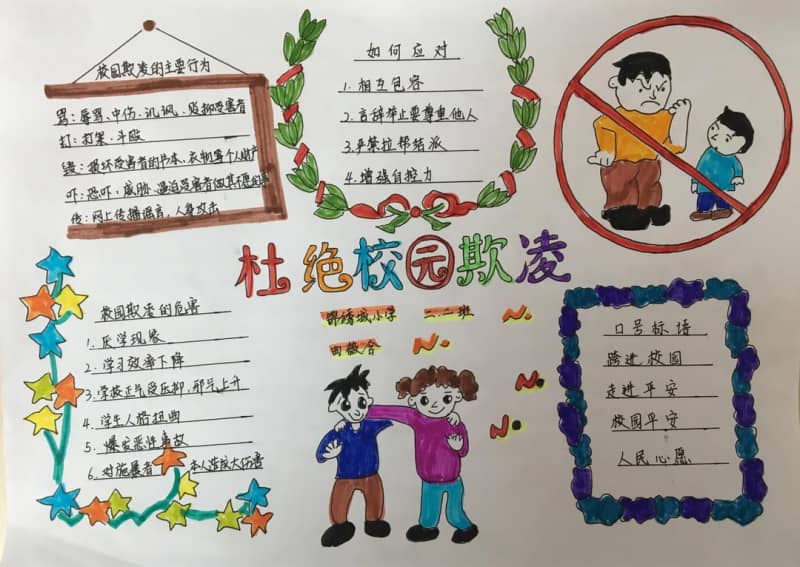 校园欺凌的主要行为
骂：辱骂、中伤、讥讽、贬抑受害者
打：打架、斗殴
毁：损坏受害者的书本、衣物等个人财产
吓：恐吓、威胁、逼迫受害者做其不愿的事
传：网上传播谣言、人身攻击
如何应对
1. 相互包容
2. 言辞举止要尊重他人
3. 严禁拉帮结派
4. 增强自控力
杜绝校园欺凌
锦绣城小学 二二班
校园欺凌的危害
1. 厌学现象
2. 学习效率下降
3. 学校正气受压抑、邪气上升
4. 学生人格扭曲
5. 爆发恶性事故
6. 对施暴者 本人造成大伤害
口号标语
跨进校园
走进平安
校园平安
人民心愿